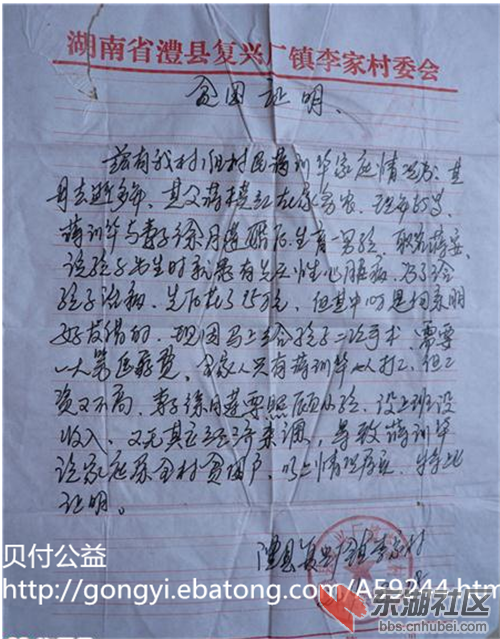 湖南省澧县复兴厂镇李家村委会
贫困证明、
兹有我村1组村民蒋训华家庭情况为:其
母去逝多年,其父蒋模红在家务农、现年
蒋训华与妻子徐月莲婚后生育一男孩、取名蒋
该孩子出生时就患有先天性心脏病、为了给
孩子治病、先后花了15万元、但其中
好友借的、现因马上给孩子二次手术、需要
一大笔医药费、全家人只有蒋训华一人打工、但工
资又不高、妻子徐月莲要照顾小孩、没上班没
收入、又无其它经济来源、导致蒋训华
该家庭系全村贫困户、以上情况属实、特此
证明。
澧县复兴厂镇李家村
贝付公益
http://gongyi.ebatong.com/AF9244.htm
东湖社区
bbs.cnhubei.com